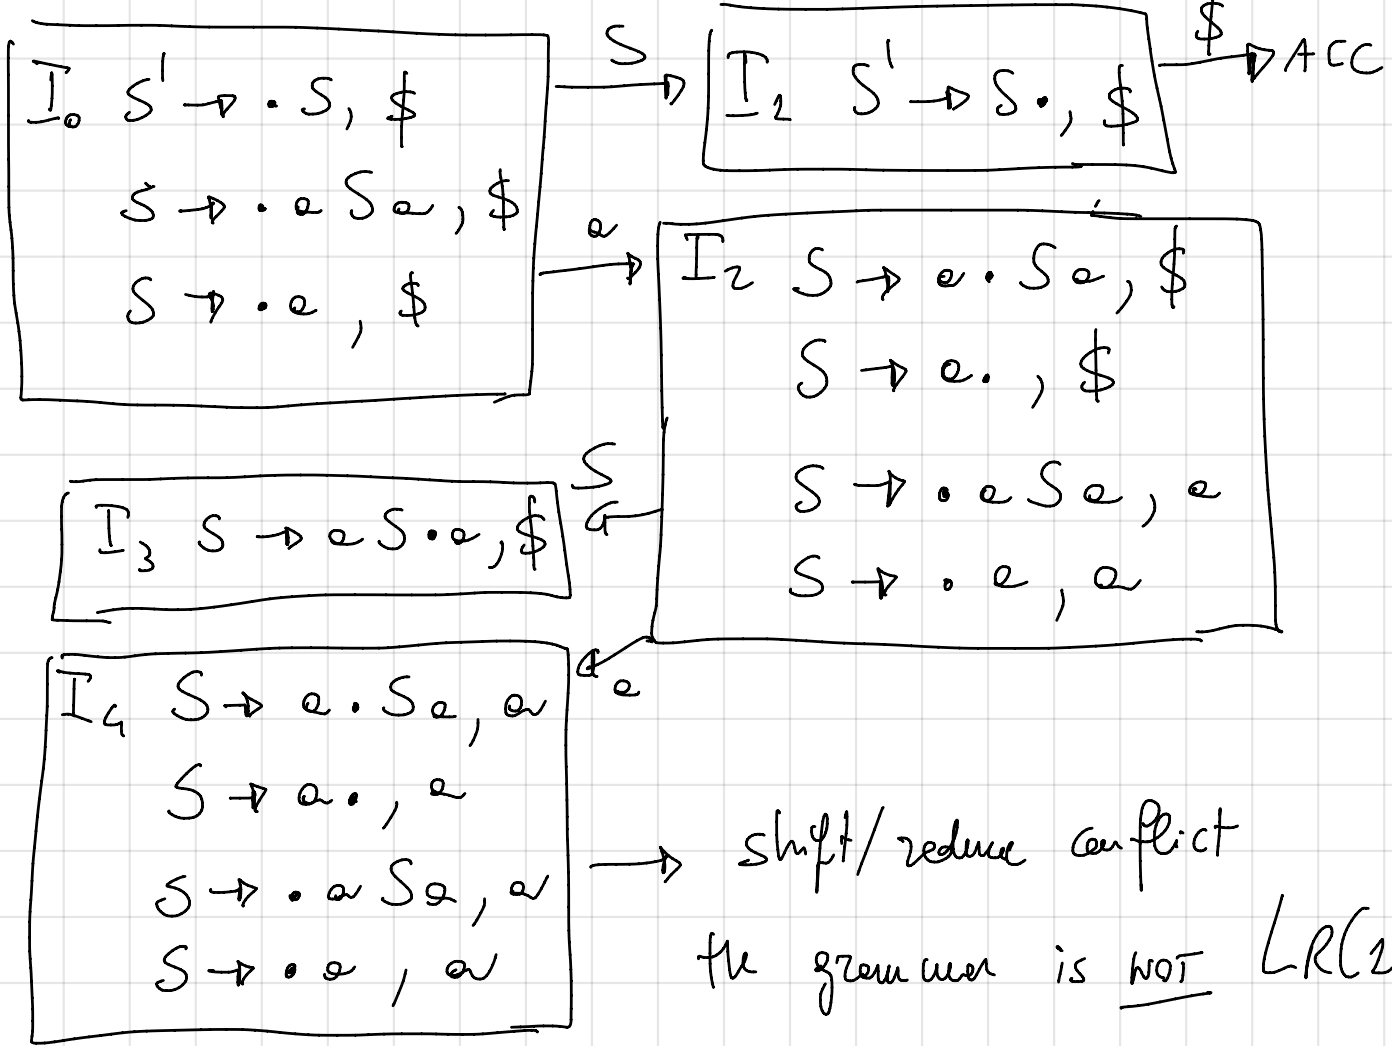 I₀ S' → · S, $
S → · a S a, $
S → · a, $
S
I₁ S' → S ·, $
$
ACC
a
I₂ S → a · S a, $
S → a ·, $
S → · a S a, a
S → · a, a
S
I₃ S → a S · a, $
a
I₄ S → a · S a, a
S → a ·, a
S → · a S a, a
S → · a, a
→ shift/reduce conflict
the grammar is NOT LR(1